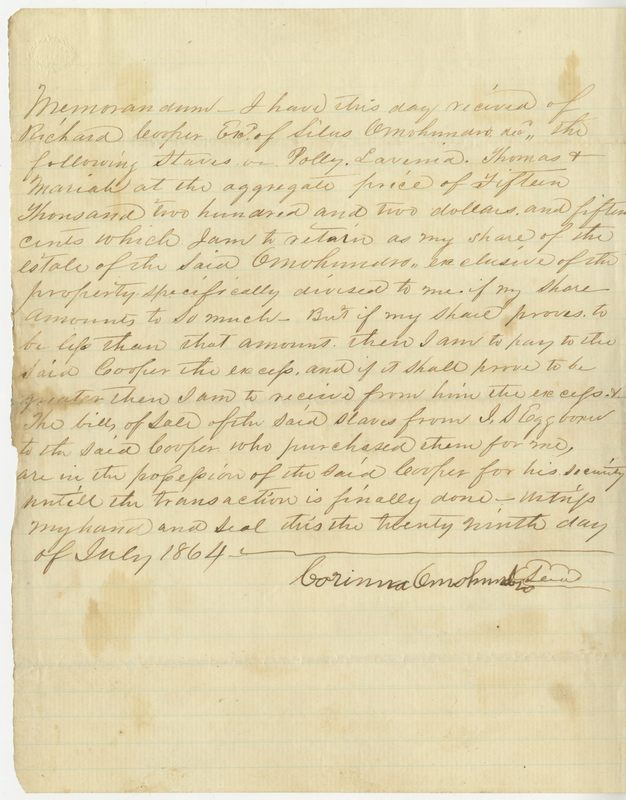 Memorandum – I have this day recived of
Richard Cooper Exr. of Silas Omohundro decd,, the
following Slaves viz Polly, Lavinia. Thomas &
Mariah at the aggregate price of Fifteen
Thousand two hundred and two dollars. and fifteen
cents which I am to retain as my share of the
estate of the said Omohundro,, exclusive of the
property specifically devised to me. if my share
amounts to so much – But if my share proves. to
be less than that amount. then I am to pay to the
said Cooper the excess. and if it shall prove to be
greater then I am to recieve from him the excess. &
The bills of sale of the said slaves from
to the said Cooper who purchased them for me,
are in the possession of the said Cooper for his security
untill the transaction is finally done – Witness
my hand and seal this the twenty ninth day
of July 1864 –
Corinna Omohundro Seal